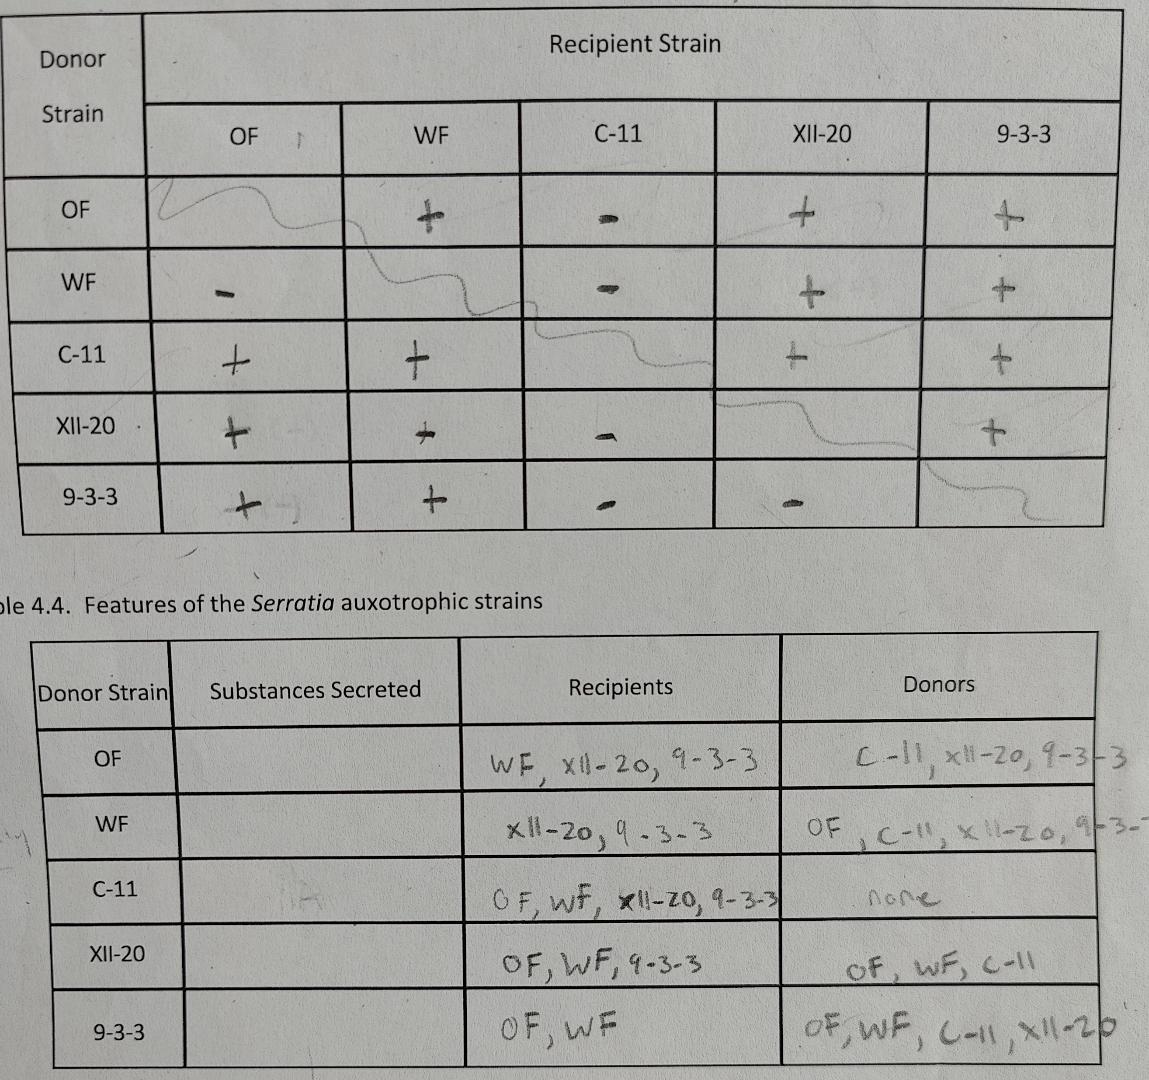 Donor Strain
Recipient Strain
OF WF C-11 XII-20 9-3-3
OF + - + +
WF - - + +
C-11 + + + +
XII-20 + + - +
9-3-3 + + - -
4.4. Features of the Serratia auxotrophic strains
Donor Strain Substances Secreted Recipients Donors
OF WF, XII-20, 9-3-3 C-11, XII-20, 9-3-3
WF XII-20, 9-3-3 OF, C-11, XII-20, 9-3-
C-11 OF, WF, XII-20, 9-3-3 none
XII-20 OF, WF, 9-3-3 OF, WF, C-11
9-3-3 OF, WF OF, WF, C-11, XII-20